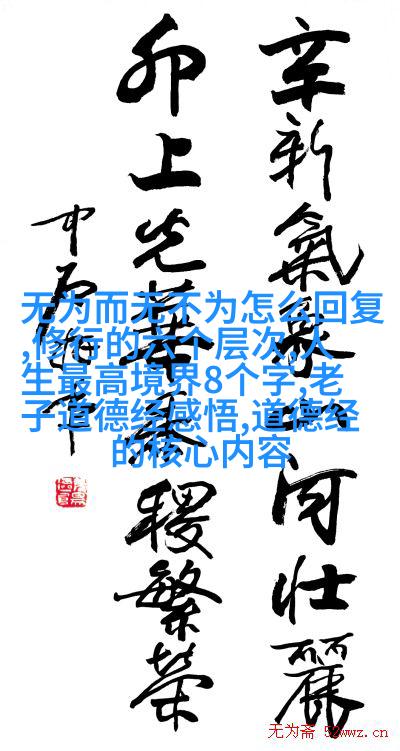 辛新氣象山河壯麗
卯上光黍稷繁榮
中石
无为而无不为怎么回复
,修行的六个层次,人
生最高境界8个字,老
子道德经感悟,道德经
的核心内容
无为斋 52wwz.cn